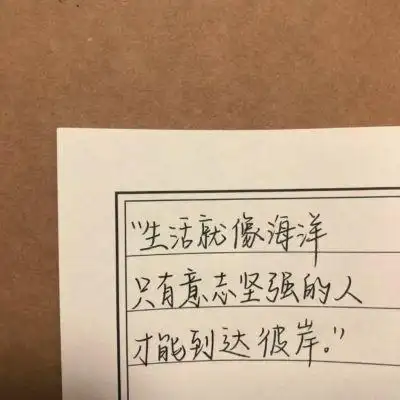 "生活就像海洋
只有意志坚强的人
才能到达彼岸。"